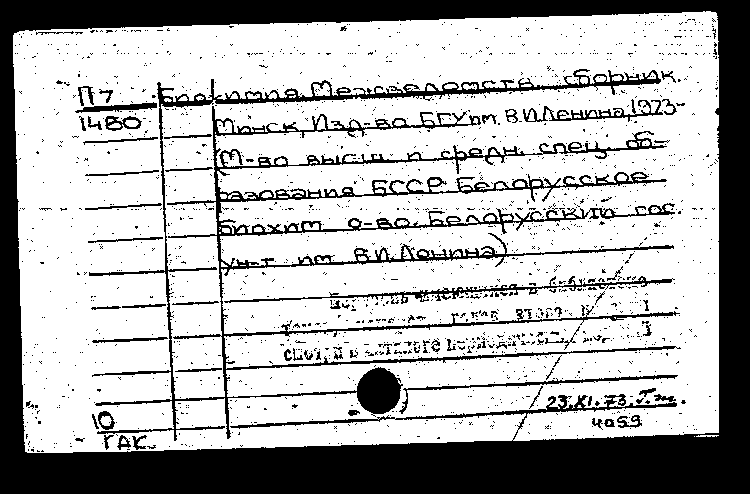 П7 Биохимия. Межведомств. сборник.
1480 Минск, Изд-во БГУ им. В.И.Ленина, 1973-
(М-во высш. и средн. спец. об-
разования БССР. Белорусское
биохим. о-во. Белорусский гос.
ун-т им. В.И.Ленина)
имеющихся в библиотеке
смотри в каталоге
10
ГАК
23.XI.73.
4059